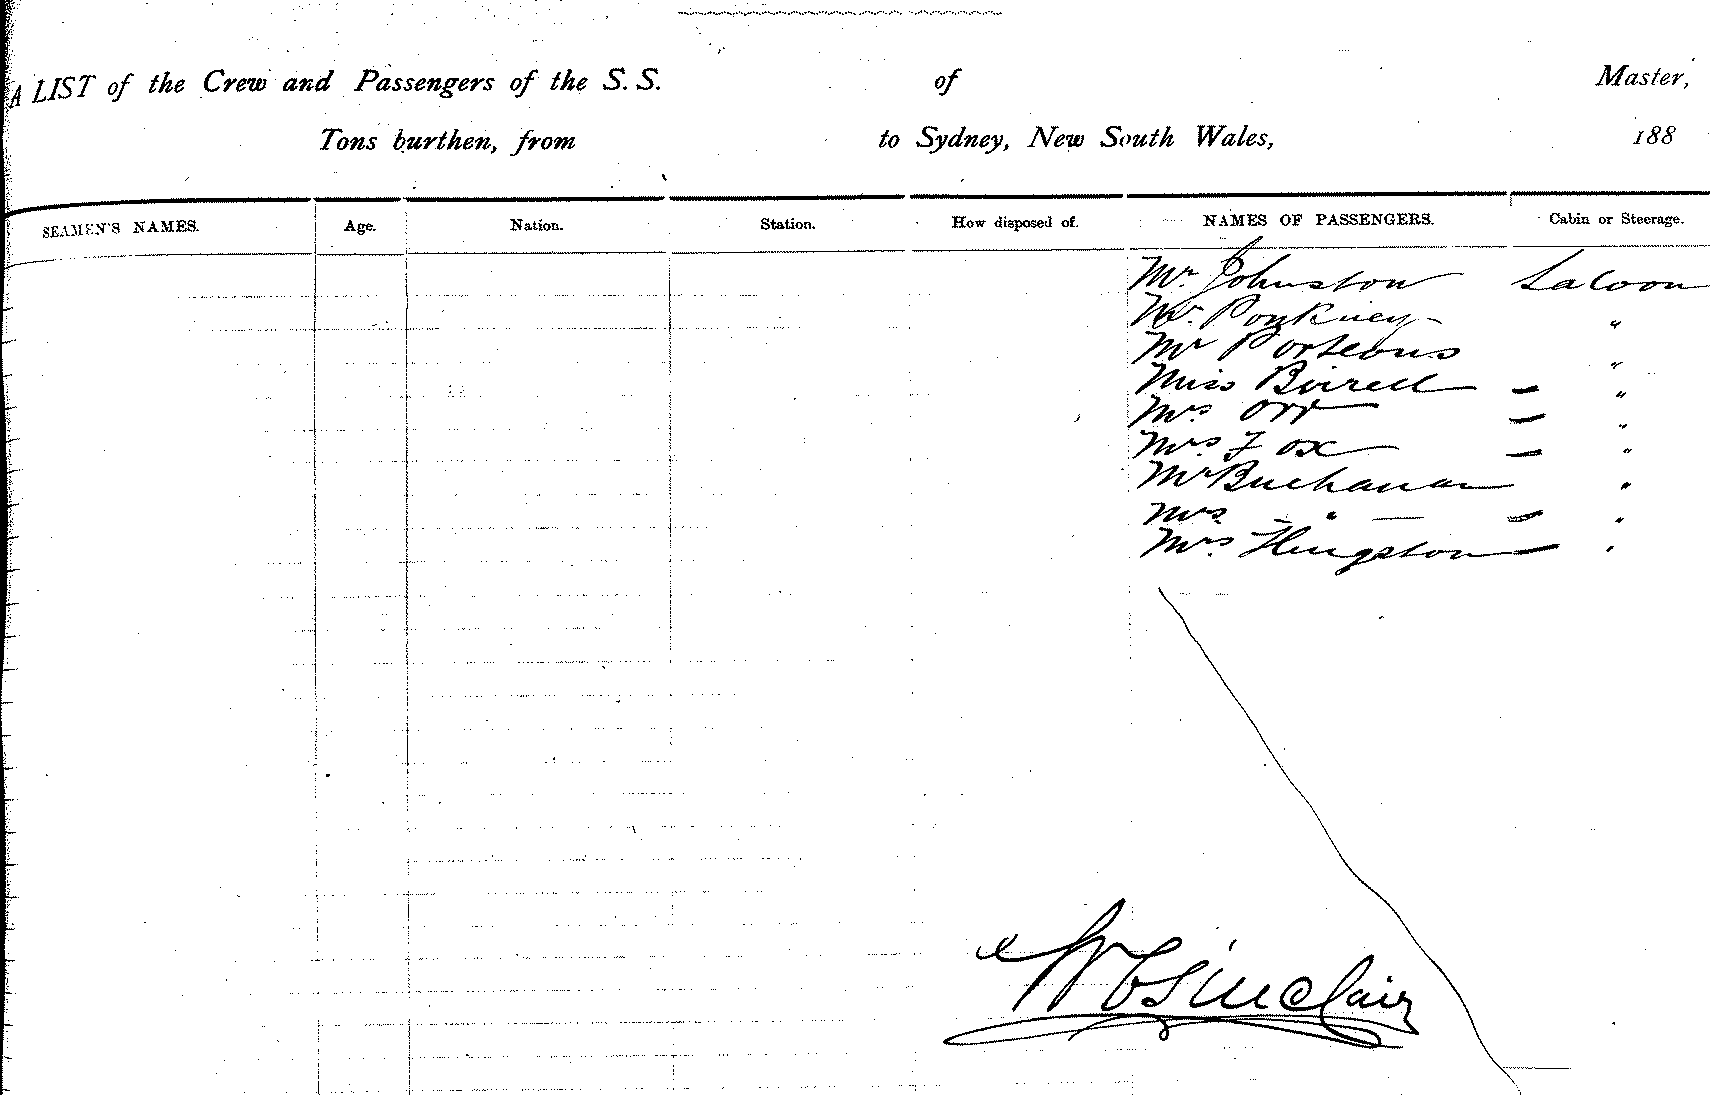 A LIST of the Crew and Passengers of the S. S. of Master,
Tons burthen, from to Sydney, New South Wales, 188
SEAMEN'S NAMES. Age. Nation. Station. How disposed of. NAMES OF PASSENGERS. Cabin or Steerage.
Mr. Johnston Saloon
Mr. "
Mr Porteous "
Miss Birrell — "
Mrs Orr — "
Mrs Fox — "
Mr Buchanan "
Mrs. " — "
Mrs. Hingston — "
W C Sinclair